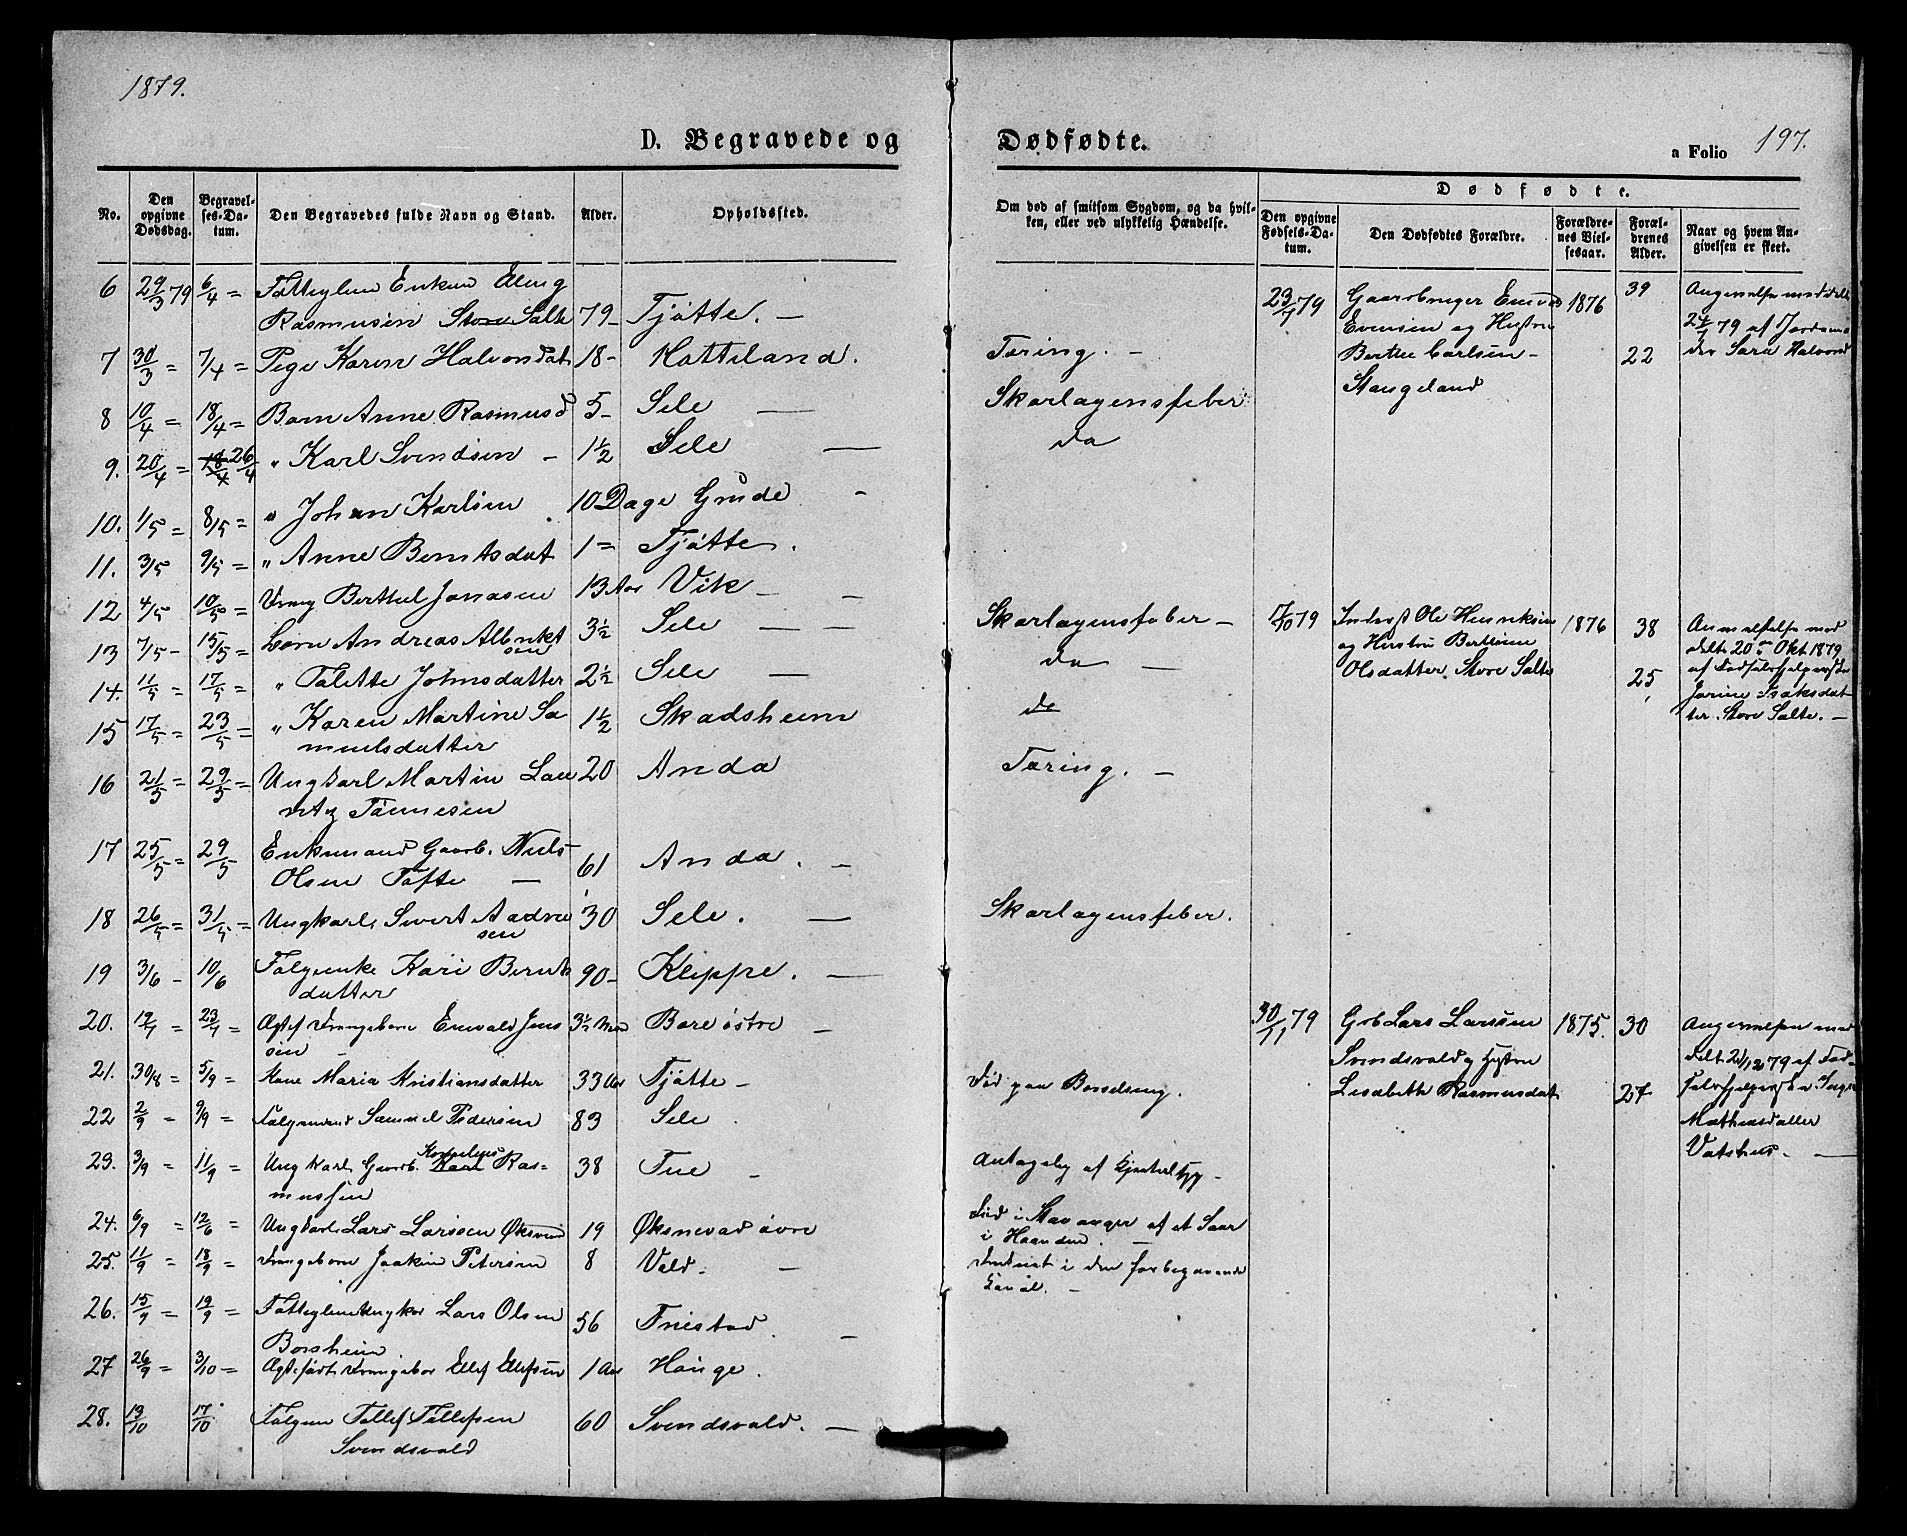 1879.
D. Begravede og Dødfødte.
a Folio 197.
No.
Den opgivne Dødsdag.
Begravelses-Datum.
Den Begravedes fulde Navn og Stand.
Alder.
Opholdssted.
Om død af smitsom Sygdom, og da hvilken, eller ved ulykkelig Hændelse.
Dødfødte.
Den opgivne Fødsels-Datum.
Den Dødfødtes Forældre.
Forældrenes Vielsesaar.
Forældrenes Alder.
Naar og hvem Angivelsen er skeet.
6 29/3 79 6/4 = Enken
Rasmusen Store Salte 79 - Tjøtte. -
7 30/3 = 7/4 = Pige Karen Halvorsdat 18 - Hattiland. Tæring. -
8 10/4 = 18/4 = Barn Anne Rasmusd 5 - Sele - Skarlagensfeber
9. 20/4 = 18/4 26/4 " Karl Svendsen - 1 1/2 Sele - da
10. 1/5 = 8/5 = " Johan Karlsen 10 Dage Grude -
11. 3/5 9/5 = " Anne Berntsdat 1 = Tjøtte.
12 4/5 10/5 = Berthel Jonasen 13 Aar Vik - Skarlagensfeber -
13 7/5 - 15/5 = Barn Andreas Albrikt
sen 3 1/2 Sele - da -
14. 11/5 = 17/5 = " Talette Johnsdatter 2 1/2 Sele - da
15 17/5 = 23/5 = " Karen Martine Sa
muelsdatter 1 1/2 Skadsheim
16 21/5 = 29/5 = Ungkarl Martin Lau
ritz Tønnesen 20 Anda Tæring. -
17 25/5 = 29/5 Enkemand Gaardb. Niels
Olsen Tofte - 61 Anda. -
18 26/5 = 31/5 = Ungkarl Sivert Aadne
sen 30 Sele. - Skarlagensfeber.
19 3/6 - 10/6 Kari Bernts
datter 90 - Kleppe. -
20. 19/7 = 23/7 = Enevald Jens
sen - 3 1/2 Bore østre -
21. 30/8 = 5/9 = Kone Maria Kristiansdatter 33 Aar Tjøtte - Død paa Barselseng.
22 2/9 = 9/9 = Samuel Pedersen 83 Sele
23. 3/9 = 11/9 = Ungkarl Gaardb. Kornelius Karl Ras=
mussen 38 Tue - Antagelig af
24. 6/9 = 12/6 = Ungkarl Lars Larssen 19 Øksnevad øvre Død i Stavanger af et Saar
i Haanden. -
25. 11/9 = 18/9 = Joakim Petersen 8 Vold. - Druknet i den
26. 15/9 = 19/9 = Lars Olsen
Borsheim 56 Friestad. -
27 26/9 = 3/10 = Ellef Ellefsen 1 Aar Hauge.
28. 13/10 17/10 Tollef Tollefsen
Svendsvold 60 Svendsvold. -
23/7 79 Gaardbruger
Evensen og Hustru
Berthe Carlsen -
Stangeland 1876 39 22
24/7 79 af
Sara Halvorsd
17/10 79 Inderst Ole Henriksen
og Hustru Bertine
Olsdatter. Store Salte 1876 38 25
Anmeldelse med
delt 20de Okt 1879
af
Jorine Isaksdat
ter. Store Salte. -
30/11 79 Gdb Lars Larssen
Svendsvold og Hustru
Lisabeth Rasmusdat 1875. 30 27
delt 2/12 79 af
Mathiasdatter
Vatshus. -